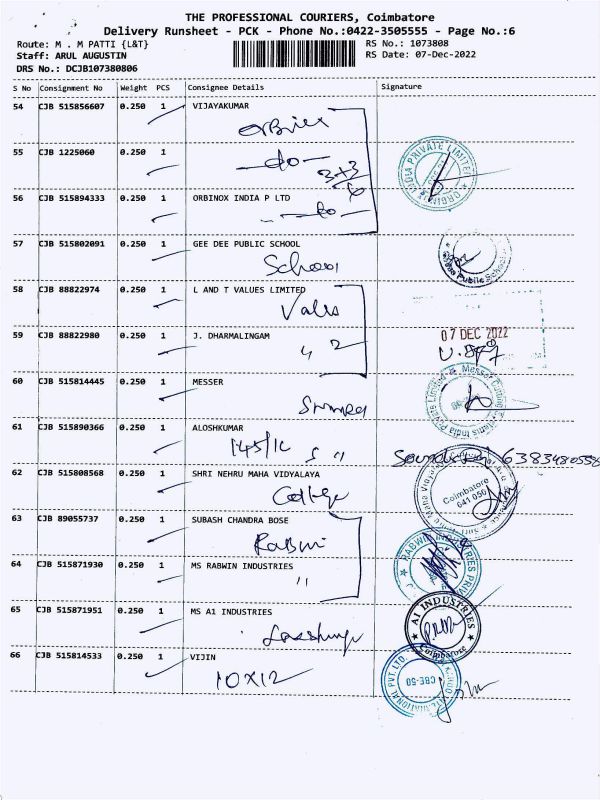 THE PROFESSIONAL COURIERS, Coimbatore
Delivery Runsheet - PCK - Phone No.:0422-3505555 - Page No.:6
Route: M . M PATTI {L&T}
RS No.: 1073808
Staff: ARUL AUGUSTIN
RS Date: 07-Dec-2022
DRS No.: DCJB107380806
S No Consignment No Weight PCS Consignee Details Signature
54 CJB 515856607 0.250 1 VIJAYAKUMAR
55 CJB 1225060 0.250 1
-do-
3+3
6
INDIA PRIVATE LIMITED
56 CJB 515894333 0.250 1 ORBINOX INDIA P LTD
-do-
57 CJB 515802091 0.250 1 GEE DEE PUBLIC SCHOOL
School
Public School
58 CJB 88822974 0.250 1 L AND T VALUES LIMITED
59 CJB 88822980 0.250 1 J. DHARMALINGAM
2
07 DEC 2022
60 CJB 515814445 0.250 1 MESSER
Messer Cutting Systems India Private Limited
61 CJB 515890366 0.250 1 ALOSHKUMAR
6383480558
62 CJB 515808568 0.250 1 SHRI NEHRU MAHA VIDYALAYA
College
Coimbatore
641 050
63 CJB 89055737 0.250 1 SUBASH CHANDRA BOSE
Rabwin
64 CJB 515871930 0.250 1 MS RABWIN INDUSTRIES
"
RABWIN INDUSTRIES PRIVATE
65 CJB 515871951 0.250 1 MS A1 INDUSTRIES
A1 INDUSTRIES
Coimbatore
66 CJB 515814533 0.250 1 VIJIN
10x12
INTERNATIONAL PVT. LTD.
CBE-50